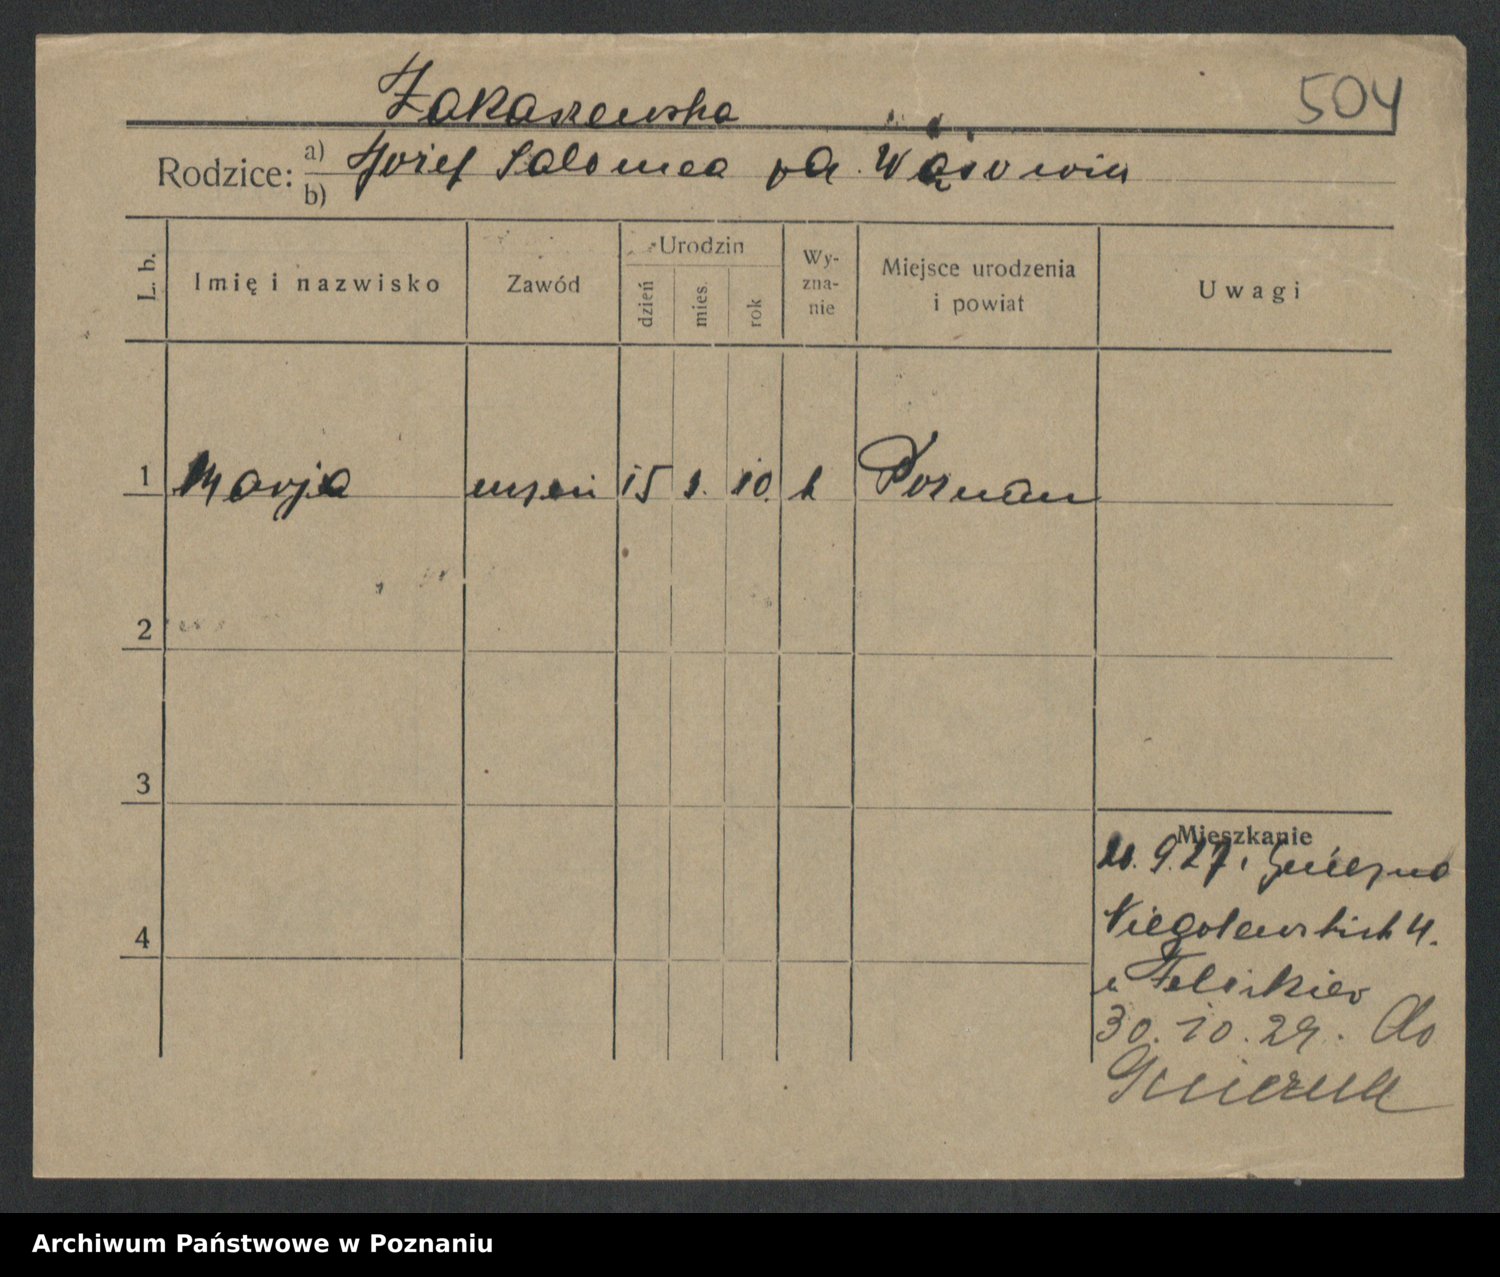 Żakaszewska
504
Rodzice: a) Józef Salomea
b)
L. b.
Imię i nazwisko
Zawód
Urodzin
dzień
mies.
rok
Wy-
zna-
nie
Miejsce urodzenia
i powiat
Uwagi
1 Marja uczen 15 10. k Poznan
2
3
4
Mieszkanie
9.27. Gniezno
Niegolewskich 4.
30.10.29. do
Gniezna
Archiwum Państwowe w Poznaniu